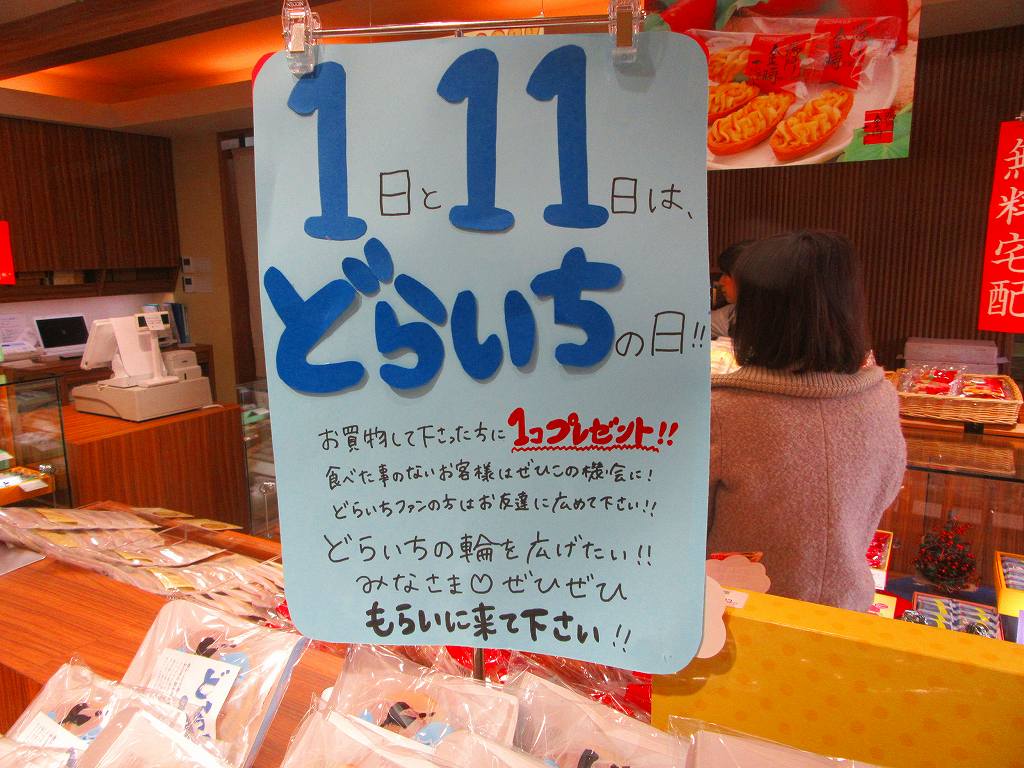 1日と11日は、
どらいちの日!!
お買物して下さった方に1コプレゼント!!
食べた事のないお客様はぜひこの機会に!
どらいちファンの方はお友達に広めて下さい!!
どらいちの輪を広げたい!!
みなさま♡ぜひぜひ
もらいに来て下さい!!
無料宅配